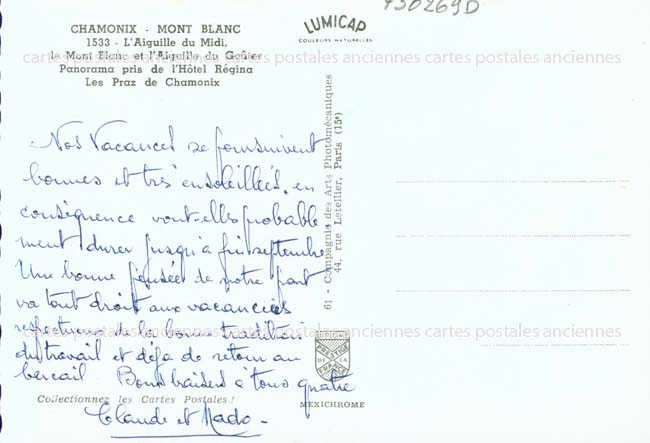 730269D
CHAMONIX - MONT BLANC
1533 - L'Aiguille du Midi,
le Mont Blanc et l'Aiguille du Goûter
Panorama pris de l'Hôtel Régina
Les Praz de Chamonix
LUMICAP
COULEURS NATURELLES
cartes postales anciennes cartes postales anciennes cartes postales anciennes
Nos vacances se poursuivent
bonnes et très ensoleillées, en
conséquence vont-elles probable
ment durer jusqu'à fin septembre
Une bonne pensée de notre part
va tout droit aux vacanciers
respectueux de la bonne tradition
du travail et déja de retour au
bercail Bons baisers à tous quatre
Claude et Mado -
cartes postales anciennes cartes postales anciennes cartes postales anciennes
Collectionnez les Cartes Postales !
61 - Compagnie des Arts Photomécaniques
44, rue Letellier, Paris (15e)
PRESTIGE
DE LA
FRANCE
MEXICHROME